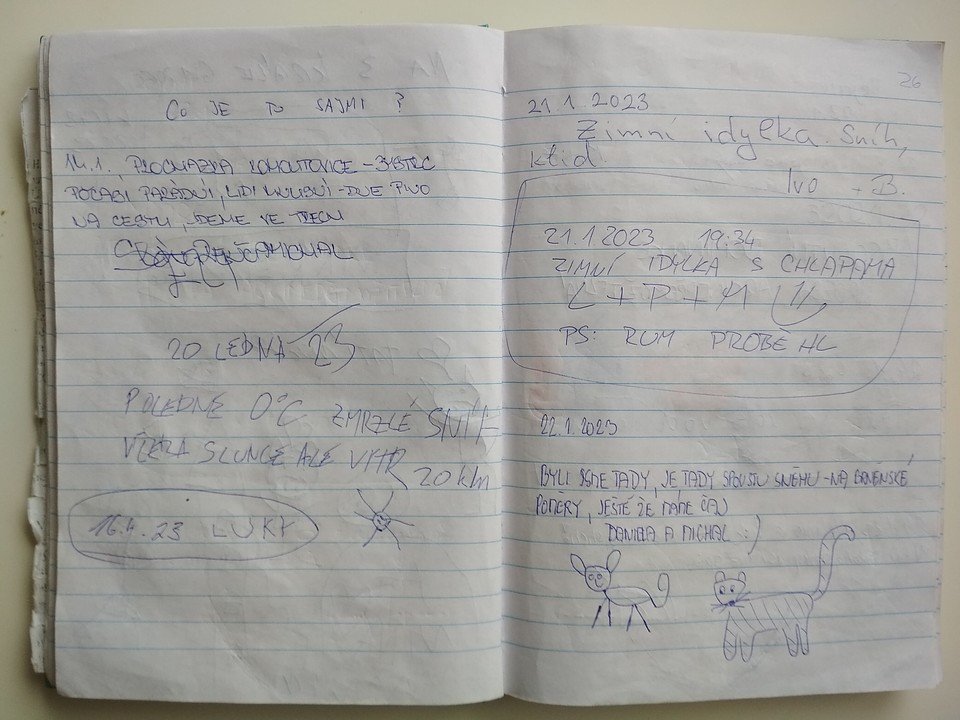 CO JE TO SAJMI ?
14.1., PROCHÁZKA KOHOUTOVICE - BYSTRC
POČASÍ PARÁDNÍ, LIDI MLUVNÍ - DVĚ PIVO
NA CESTU, JDEME VE TŘECH
MICHAL
20 LEDNA 23
POLEDNE 0°C ZMRZLÉ SNÍH
VČERA SLUNCE ALE VÍTR
20 km
16.1.23 LUKY
26
21.1.2023
Zimní idylka. Sníh,
klid.
Ivo - B.
21.1.2023 19:34
ZIMNÍ IDYLKA S CHLAPAMA
L + P + M
PS: RUM PROBĚHL
22.1.2023
BYLI JSME TADY, JE TADY SPOUSTU SNĚHU - NA BRNĚNSKÉ
POMĚRY, JEŠTĚ ŽE MÁME ČAJ
DANIELA A MICHAL :)